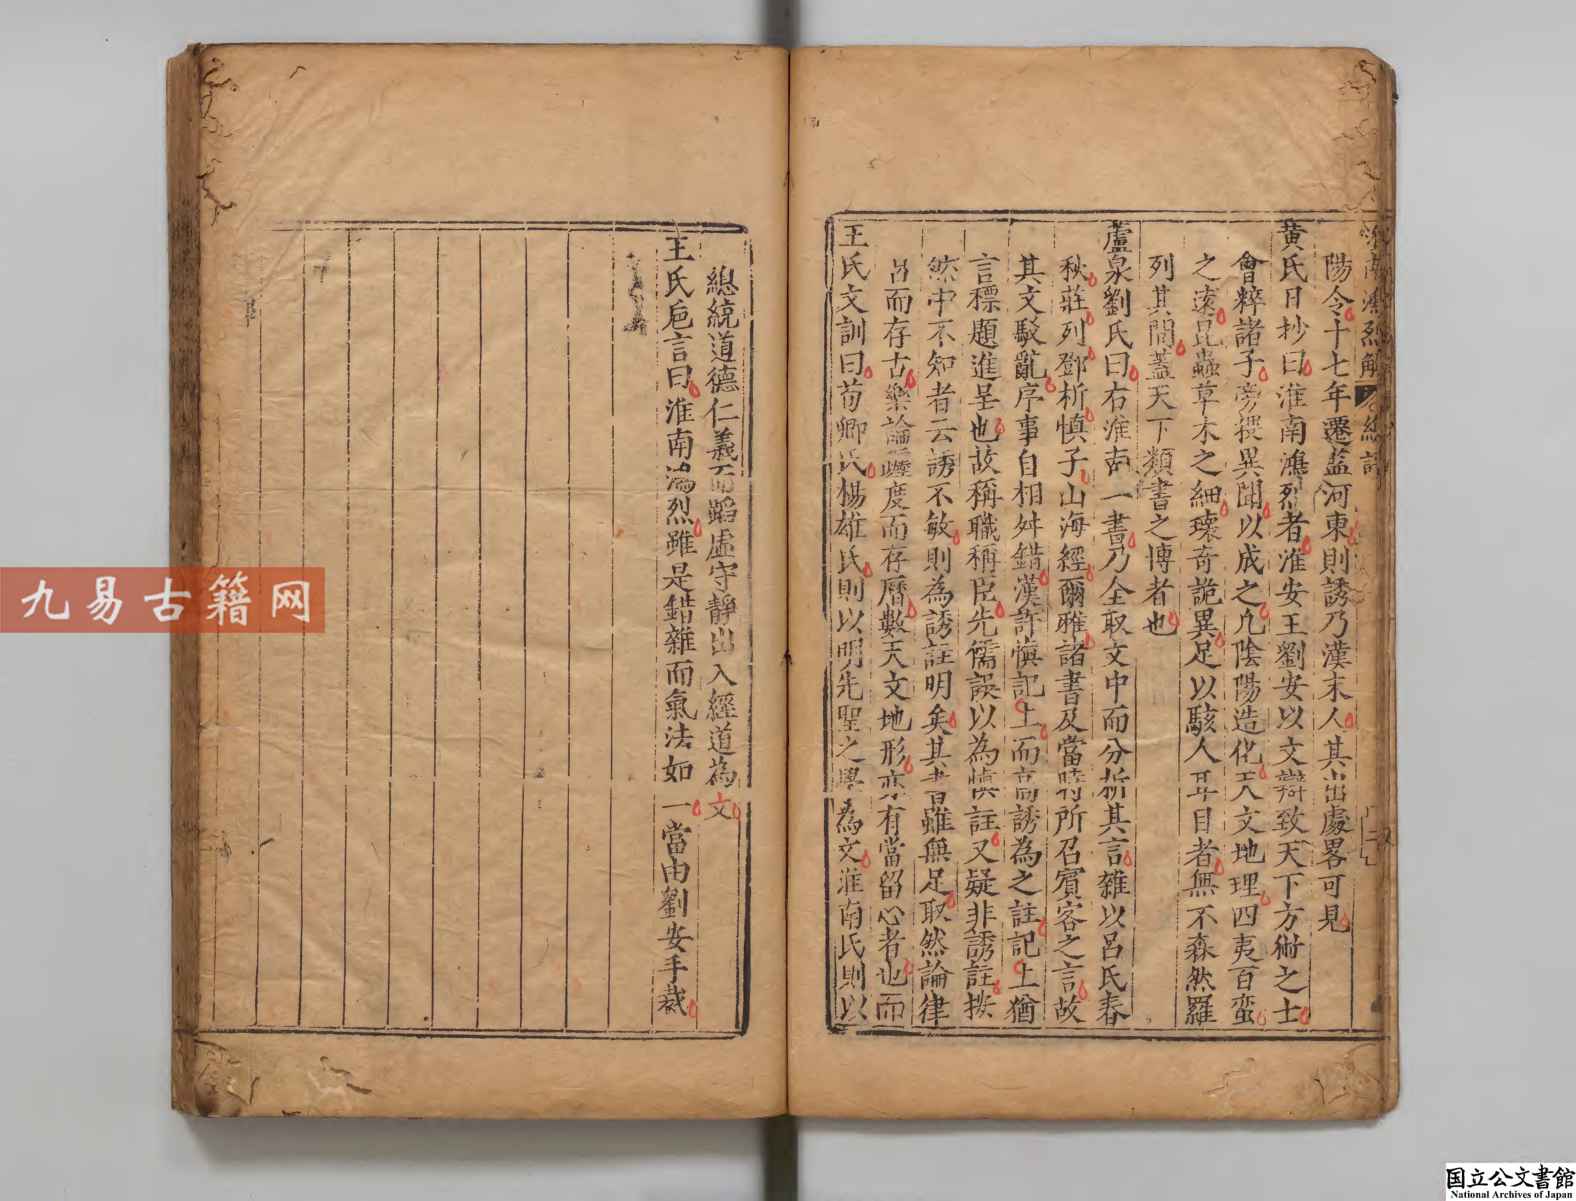 淮南鴻烈解 總評
陽令十七年遷監河東則誘乃漢末人其出處畧可見
黄氏日抄曰淮南鴻烈者淮安王劉安以文辯致天下方術之士
會粹諸子旁搜異聞以成之凡陰陽造化天文地理四夷百蠻
之遠昆蟲草木之細瓌奇詭異足以駭人耳目者無不森然羅
列其間蓋天下類書之博者也
蘆泉劉氏曰右淮南一書乃全取文中而分析其言雜以呂氏春
秋莊列鄧析慎子山海經爾雅諸書及當時所召賓客之言故
其文駁亂序事自相舛錯漢許慎記上而高誘為之註記上猶
言標題進呈也故稱職稱臣先儒誤以為慎註又疑非誘註按
然中不知者云誘不敏則為誘註明矣其書雖無足取然論律
呂而存古樂論躔度而存曆數天文地形亦有當留心者也而
王氏文訓曰荀卿氏楊雄氏則以明先聖之學為文淮南氏則以
總統道德仁義而蹈虛守靜出入經道為文
王氏巵言曰淮南鴻烈雖是錯雜而氣法如一當由劉安手裁
九易古籍网
国立公文書館
National Archives of Japan